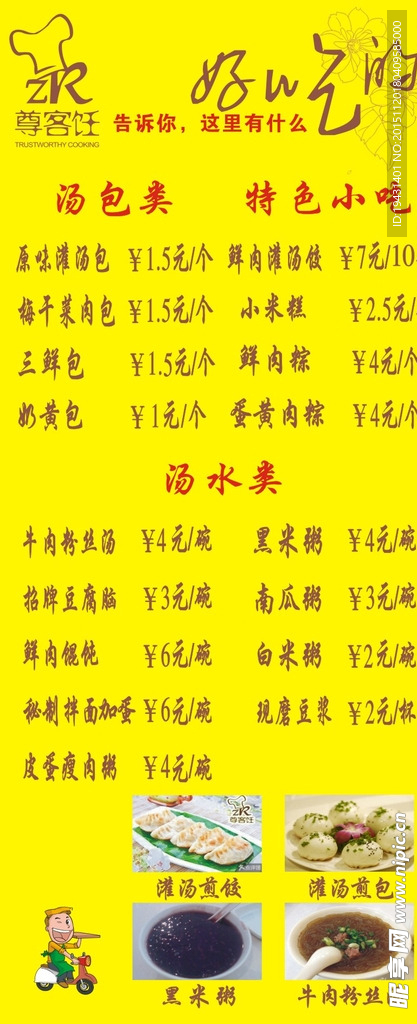 ZR
尊客饪
TRUSTWORTHY COOKING
好吃的
告诉你，这里有什么
汤包类 特色小吃
原味灌汤包 ￥1.5元/个 鲜肉灌汤饺 ￥7元/10
梅干菜肉包 ￥1.5元/个 小米糕 ￥2.5元/
三鲜包 ￥1.5元/个 鲜肉粽 ￥4元/个
奶黄包 ￥1元/个 蛋黄肉粽 ￥4元/个
汤水类
牛肉粉丝汤 ￥4元/碗 黑米粥 ￥4元/碗
招牌豆腐脑 ￥3元/碗 南瓜粥 ￥3元/碗
鲜肉馄饨 ￥6元/碗 白米粥 ￥2元/碗
秘制拌面加蛋 ￥6元/碗 现磨豆浆 ￥2元/杯
皮蛋瘦肉粥 ￥4元/碗
ZR
尊客饪
灌汤煎饺 灌汤煎包
黑米粥 牛肉粉丝
ID:19431401 NO:20151120180409585000
昵享网 www.nipic.cn